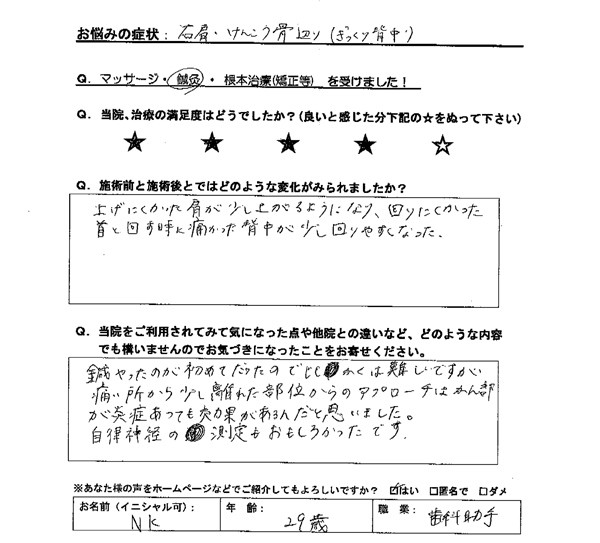 お悩みの症状: 右肩・けんこう骨辺り(ぎっくり背中)
Q. マッサージ・鍼灸・根本治療(矯正等) を受けました!
Q. 当院、治療の満足度はどうでしたか?(良いと感じた分下記の☆をぬって下さい)
★ ★ ★ ★ ☆
Q. 施術前と施術後とではどのような変化がみられましたか?
上げにくかった肩が少し上がるようになり、回りにくかった
首と回す時に痛かった背中が少し回りやすくなった.
Q. 当院をご利用されてみて気になった点や他院との違いなど、どのような内容
でも構いませんのでお気づきになったことをお寄せください。
鍼やったのが初めてだったので比かくは難しいですが
痛い所から少し離れた部位からのアプローチはかん部
が炎症あっても効果があるんだと思いました。
自律神経の測定もおもしろかったです.
※あなた様の声をホームページなどでご紹介してもよろしいですか? ☑はい □匿名で □ダメ
お名前(イニシャル可): NK 年 齢: 29歳 職 業: 歯科助手